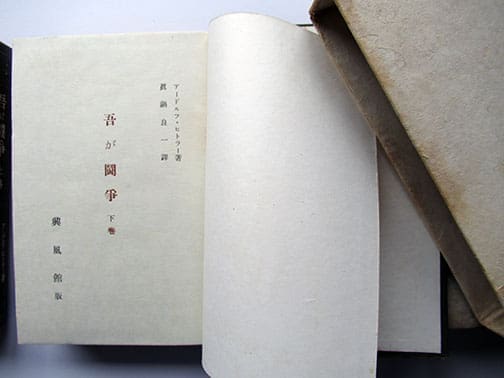 アードルフ・ヒトラー著
眞鍋良一譯
吾が鬪爭 下巻
興風館版